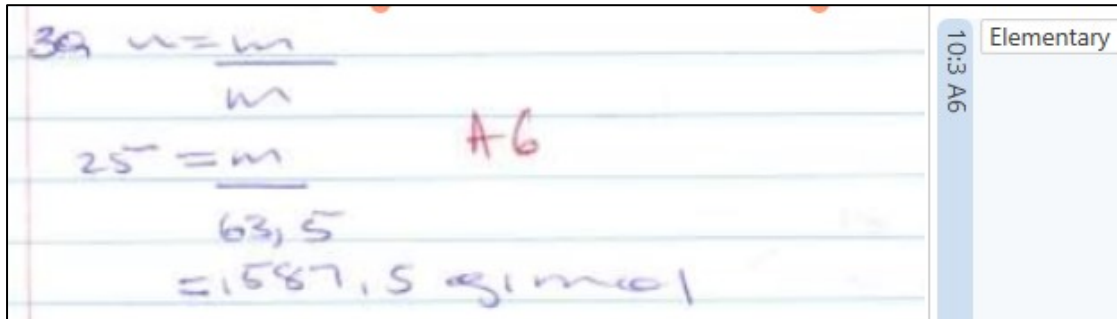 3a n = m
m
A6
25 = m
63,5
= 1587,5 g/mol
10:3 A6
Elementary